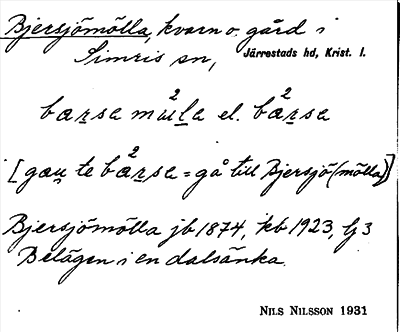 Bjersjömölla, kvarn o. gård i
Simris sn, Järrestads hd, Krist. l.
bærsa m²ɯla el. b²ærsa
[gæu̯ te b²ærsa = gå till Bjersjö(mölla)]
Bjersjömölla jb 1874, kb 1923, Lj 3
Belägen i en dalsänka.
NILS NILSSON 1931